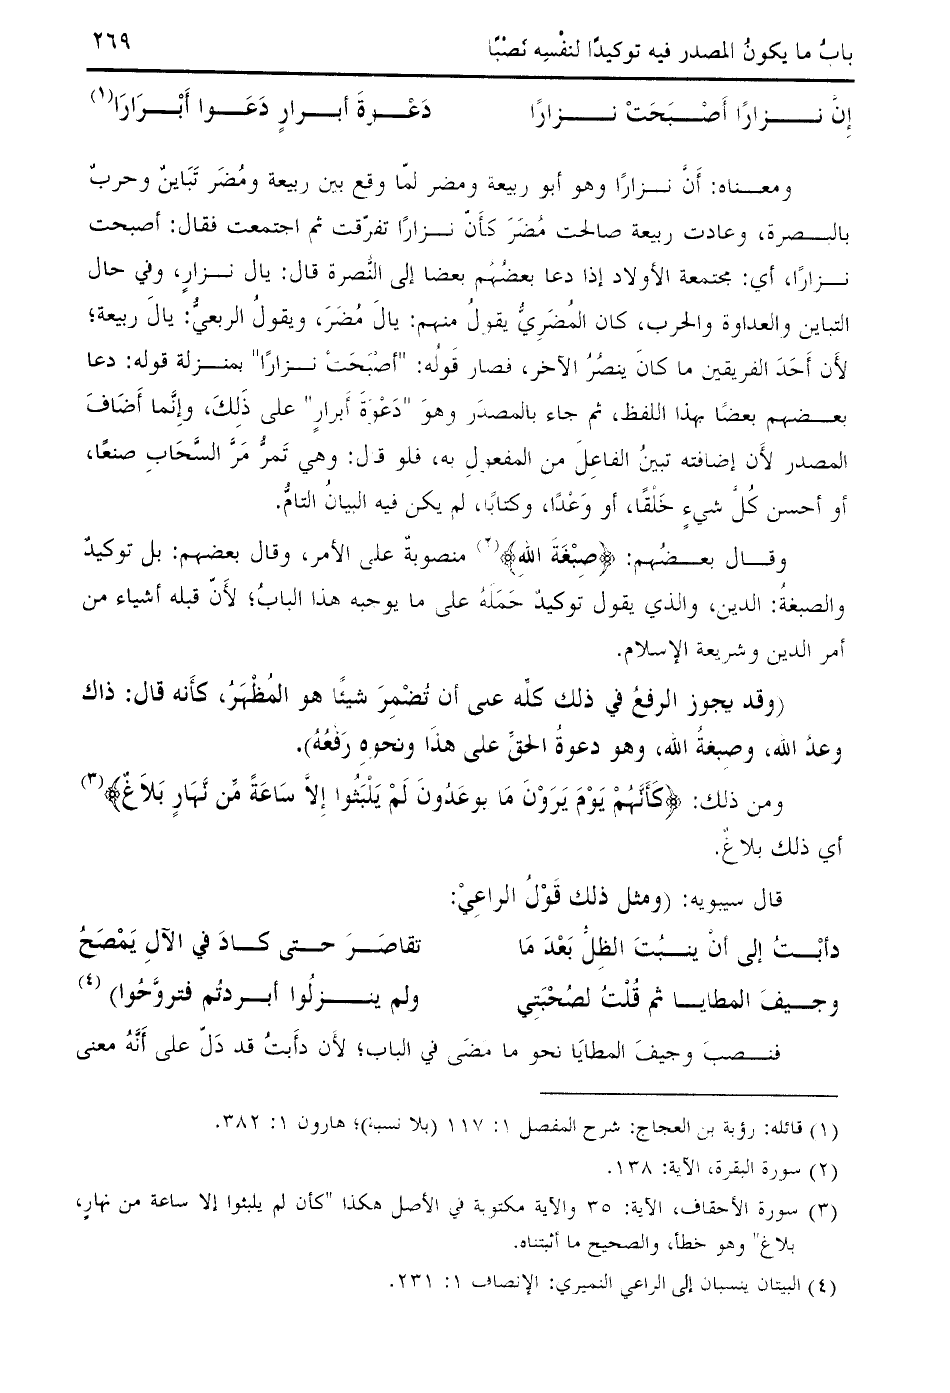 باب ما يكونُ المصدر فيه توكيدًا لنفْسِه نَصْبًا ٢٦٩
إنَّ نـــزارًا أصْـبَحَتْ نـــزارًا دَعْــوةَ أبـرارٍ دَعَـوا أَبْـرَارَا(١)
ومعـناه: أنَّ نـزارًا وهو أبو ربيعة ومضر لمّا وقع بين ربيعة ومُضَر تَبَاينٌ وحربٌ
بالـبصرة، وعادت ربيعة صالحت مُضَرَ كأنّ نـزارًا تفرّقت ثم اجتمعت فقال: أصبحت
نـزارًا، أي: مجتمعة الأولاد إذا دعا بعضُهُم بعضا إلى النُّصرة قال: يال نـزارٍ، وفي حال
التباين والعداوة والحرب، كان المُضَرِيُّ يقولُ منهم: يالَ مُضَرَ، ويقولُ الربعيُّ: يالَ ربيعة؛
لأن أَحَدَ الفريقين ما كانَ ينصُرُ الآخر، فصار قَولُه: "أصْبَحَتْ نـزارًا" بمنـزلة قوله: دعا
بعـضهم بعضًا بهذا اللفظ، ثم جاء بالمصدَر وهوَ "دَعْوَةَ أبرارٍ" على ذلكَ، وإنَّما أضَافَ
المصدر لأن إضافته تبينُ الفاعلَ من المفعولِ به، فلو قال: وهي تَمرُّ مَرَّ السَّحَابِ صنعًا،
أو أحسن كُلَّ شيءٍ خَلْقًا، أو وَعْدًا، وكتابًا، لم يكن فيه البيانُ التامُّ.
وقـال بعـضُهم: ﴿صِبْغَةَ اللهِ﴾(٢) منصوبةٌ على الأمر، وقال بعضهم: بل توكيدٌ
والصبغةُ: الدين، والذي يقول توكيدٌ حَمَلَهُ على ما يوجبه هذا البابُ؛ لأنّ قبله أشياء من
أمر الدين وشريعة الإسلام.
(وقد يجوز الرفعُ في ذلك كلِّه على أن تُضْمِرَ شيئًا هو المُظْهَرُ، كأنه قال: ذاك
وعدُ الله، وصبغةُ الله، وهو دعوةُ الحقِّ على هذَا ونحوِه رَفْعُهُ).
ومن ذلك: ﴿كَأَنَّهُمْ يَوْمَ يَرَوْنَ مَا يوعَدُونَ لَمْ يَلْبَثُوا إلاَّ سَاعَةً مِّن نَّهَارٍ بَلاَغٌ﴾(٣)
أي ذلك بلاغٌ.
قال سيبويه: (ومثل ذلك قَوْلُ الراعِيْ:
دأبْـتُ إلى أنْ ينـبُتَ الظلُّ بَعْدَ مَا تقاصَـرَ حـتى كـادَ في الآلِ يَمْصَحُ
وجـيفَ المطايـا ثم قُلْتُ لصُحْبَتِي ولم ينـزلُوا أبـردتُم فتروَّحُوا) (٤)
فنـصبَ وجيفَ المطايَا نحو ما مضَى في الباب؛ لأن دأبتُ قد دَلّ على أَنَّهُ معنى
(١) قائله: رؤبة بن العجاج: شرح المفصل ١: ١١٧ (بلا نسبة)؛ هارون ١: ٣٨٢.
(٢) سورة البقرة، الآية: ١٣٨.
(٣) سورة الأحقاف، الآية: ٣٥ والآية مكتوبة في الأصل هكذا "كأن لم يلبثوا إلا ساعة من نهارٍ،
بلاغ" وهو خطأ، والصحيح ما أثبتناه.
(٤) البيتان ينسبان إلى الراعي النميري: الإنصاف ١: ٢٣١.